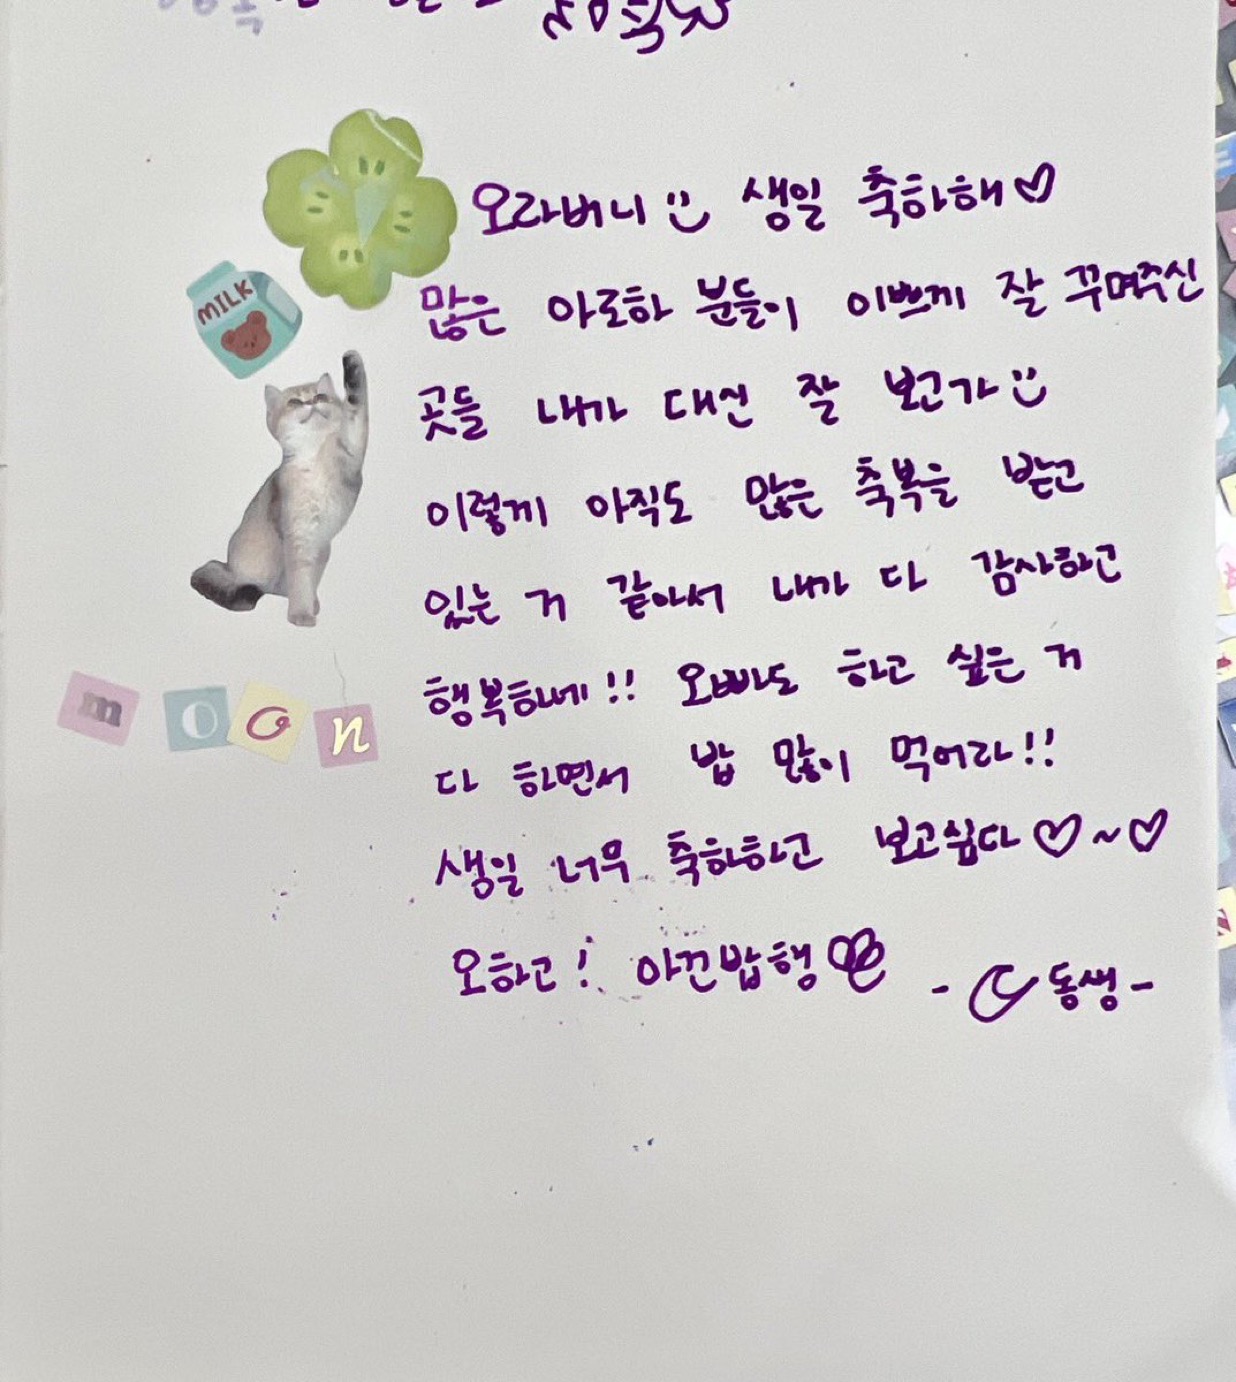 오라버니 생일 축하해♡
MILK
많은 아로하 분들이 이쁘게 잘 꾸며주신
곳들 내가 대신 잘 보고가
이렇게 아직도 많은 축복을 받고
있는 거 같아서 내가 다 감사하고
행복하네!! 오빠도 하고 싶은 거
moon
다 하면서 밥 많이 먹어라!!
생일 너무 축하하고 보고싶다♡~♡
오하고! 아낀밥행♡
-☾동생-